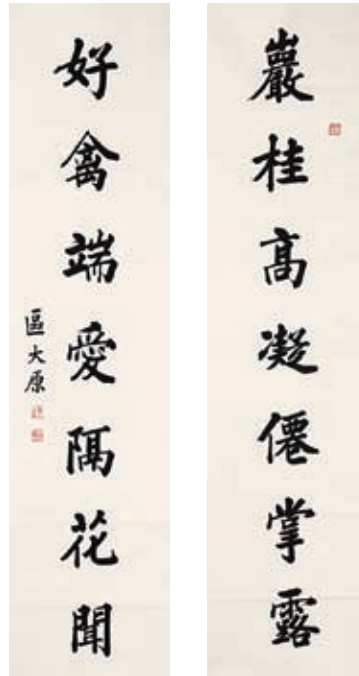 巖桂高凝僊掌露
好禽端愛隔花聞
區大原